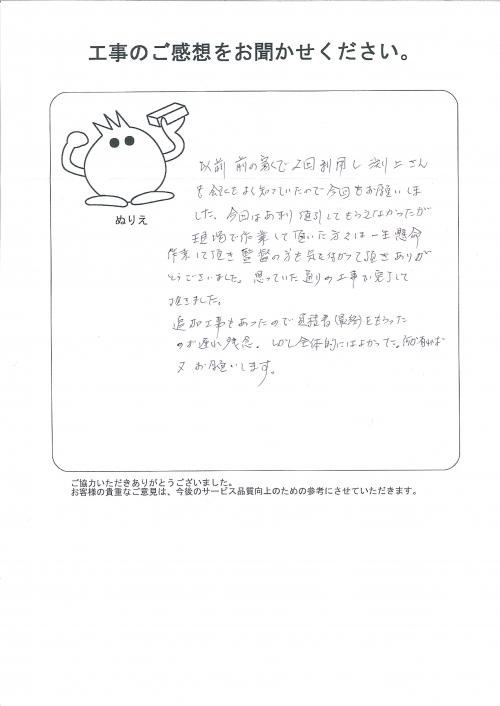 工事のご感想をお聞かせください。
ぬりえ
以前 前の家で2回利用し さん
をよく知っていたので今回もお願いしま
した。今回はあまり値引してもらえなかったが
現場で作業して頂いた方々は一生懸命
作業して頂き監督の方も気を付かって頂きありが
とうございました。思っていた通りの工事が完了して
頂きました。
追加工事もあったので見積書(最終)をもらった
のが遅れ残念。しかし全体的にはよかった。何か有れば
又お願いします。
ご協力いただきありがとうございました。
お客様の貴重なご意見は、今後のサービス品質向上のための参考にさせていただきます。